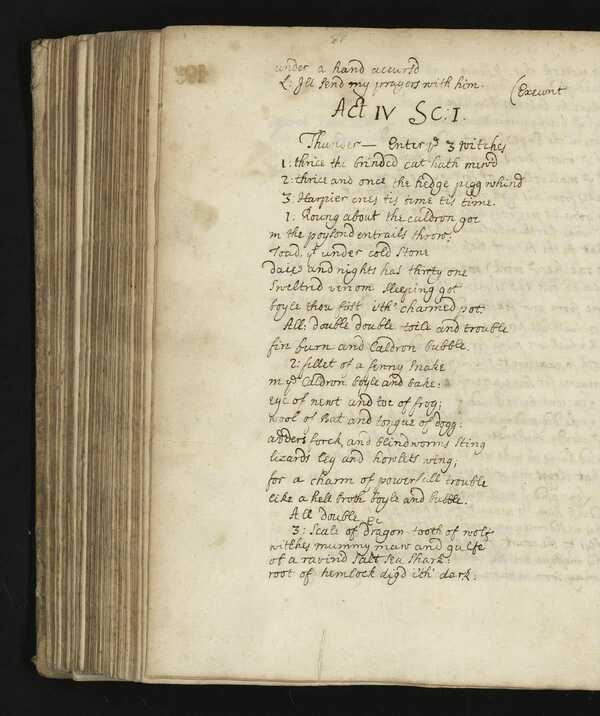 under a hand accursd
L: Ile send my prayers with him.
(Exeunt
Act IV Sc: I.
Thunder — Enter ye 3 witches
1: thrice the brinded cat hath mewd
2: thrice and once the hedge pigg whind
3. Harpier cries tis time tis time.
1: Round about the caldron goe
in the poysond entrails throw;
Toad, yt under cold stone
daies and nights has thirty one
Sweltrd venom sleeping got
boyle thou first i'th' charmed pot.
All: double double toile and trouble
fire burn and Caldron bubble.
2: fillet of a fenny snake
in ye Caldron boyle and bake:
eye of newt and toe of frog;
wool of Bat and tongue of dogg:
adders forck, and blindworms sting
lizards leg and howlets wing;
for a charm of powerfull trouble
like a hell broth boyle and bubble.
All double &c
3: Scale of dragon tooth of wolf
witches mummy maw and gulfe
of a ravind salt sea shark:
root of hemlock digd i'th' dark: